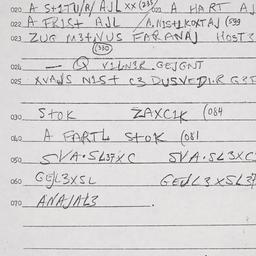 020 A S+1TU/R/ AJL XX (35) 022 A HART AJ
022 A-TRIST AJL /A.NIST1LKOXTAJ (599
023 ZUG M3+NVS FARANAJ HOST3
(380)
024 — Q V1LN3R GEJGNT
025 XVAJS N1ST C3 DUSVED1.R G3T
030 StOK ZAXC1K (084
040 A FARTL StOK (081
050 SVA.SL37XC SVA.SL3XC
060 GEJL3XSL GEJL3XSL37
070 ANAJAL3